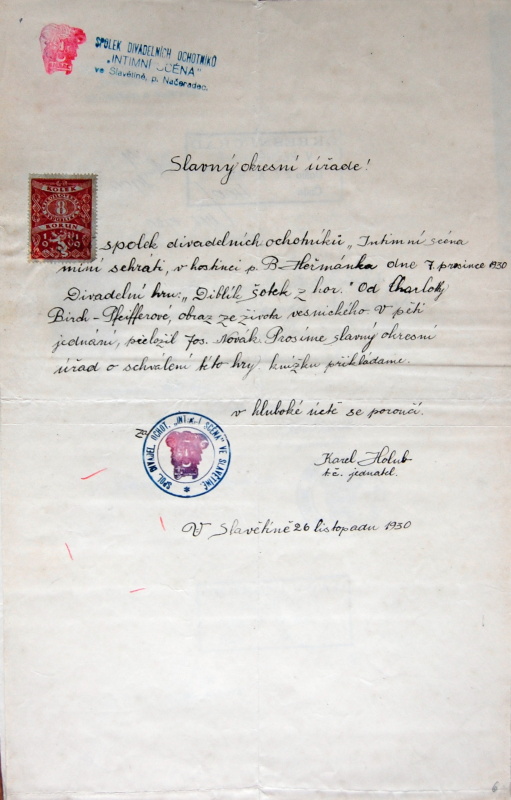 SPOLEK DIVADELNÍCH OCHOTNÍKŮ
„INTIMNÍ SCÉNA"
ve Slavětíně, p. Načeradec.
Slavný okresní úřade!
KOLEK
8
KORUN
1919
spolek divadelních ochotníků „Intimní scéna
míní sehráti, v hostinci p. B. Heřmánka dne 7. prosince 1930
Divadelní hru: „Diblík šotek z hor." Od Charlotty
Birch-Pfeifferové, obraz ze života vesnického v pěti
jednání, přeložil Jos. Novák. Prosíme slavný okresní
úřad o schválení této hry. knížku přikládáme.
v hluboké úctě se poroučí.
Za
SPOL. DIVADEL. OCHOT. „INTIMNÍ SCÉNA" VE SLAVĚTÍNĚ
Karel Holub
t.č. jednatel.
V Slavětíně 26 listopadu 1930
6